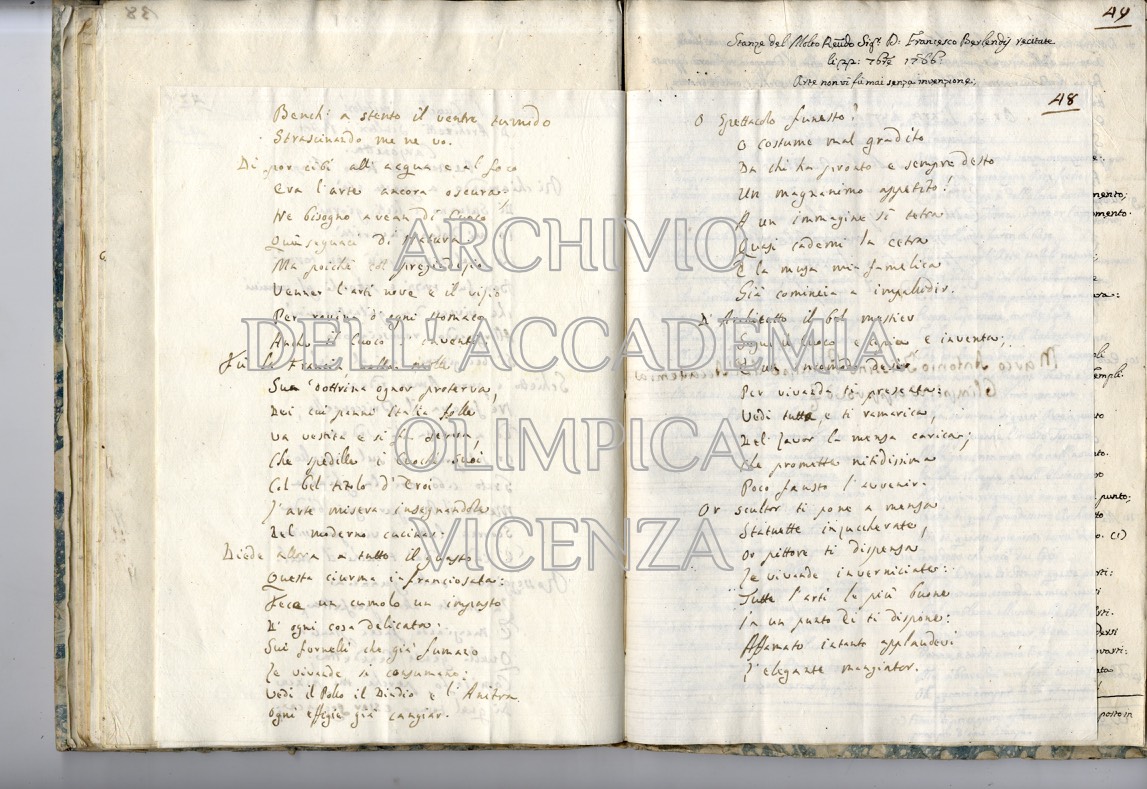 Benchè a stento il ventre tumido
Strascinando me ne vo.
Di por cibi all' acqua e al foco
Era l'arte ancora oscura
Ne bisogno avean di Cuoco
Quei seguaci di Natura.
Ma poichè col pregiudizio
Venner l'arti nove e il vizio
Per rovina d'ogni stomaco
Anche il Cuoco
Fù la Francia
Sua dottrina ognor proterva,
Dei cui panni Italia folle
Va vestita e si fa serva
Che spedille i Cuochi suoi
Col bel titolo d'Eroi
L'arte misera insegnandole
Del moderno cucinar.
Diede allora a tutto il guasto
Questa ciurma infranciosata:
Fece un cumolo un impasto
D' ogni cosa delicata:
Sui fornelli che già fumano
Le vivande si consumano:
Vedi il Pollo il Dindio e l'Anitra
Ogni effigie già cangiar.
49
Stanze del Molto Reudo Sigr. D: Francesco Berlendij recitate
li 1766
Arte non vi fù mai senza invenzione;
48
O Spettacolo funesto!
O costume mal gradito
Da chi ha pronto e sempre desto
Un magnanimo appetito!
A un immagine sì tetra
Quasi cademi la cetra
E la musa mia famelica
Già comincia a impallidir.
D' Architetto il bel mestier
Ogni Cuoco e copia e inventa;
E un
Per vivanda ti presenta:
Vedi tutto, e ti ramarica,
Del lavor la mensa carica;
Che promette nitidissima
Poco fausto l'avvenir.
Or scultor ti pone a mensa
Statuette inzuccherate,
Or pittore ti dispensa
Le vivande inverniciate:
Tutte l'arti le più buone
In un punto ei ti dispone:
Affamato intanto applaudevi
L'elegante mangiator.
ARCHIVIO
DELL'ACCADEMIA
OLIMPICA
VICENZA